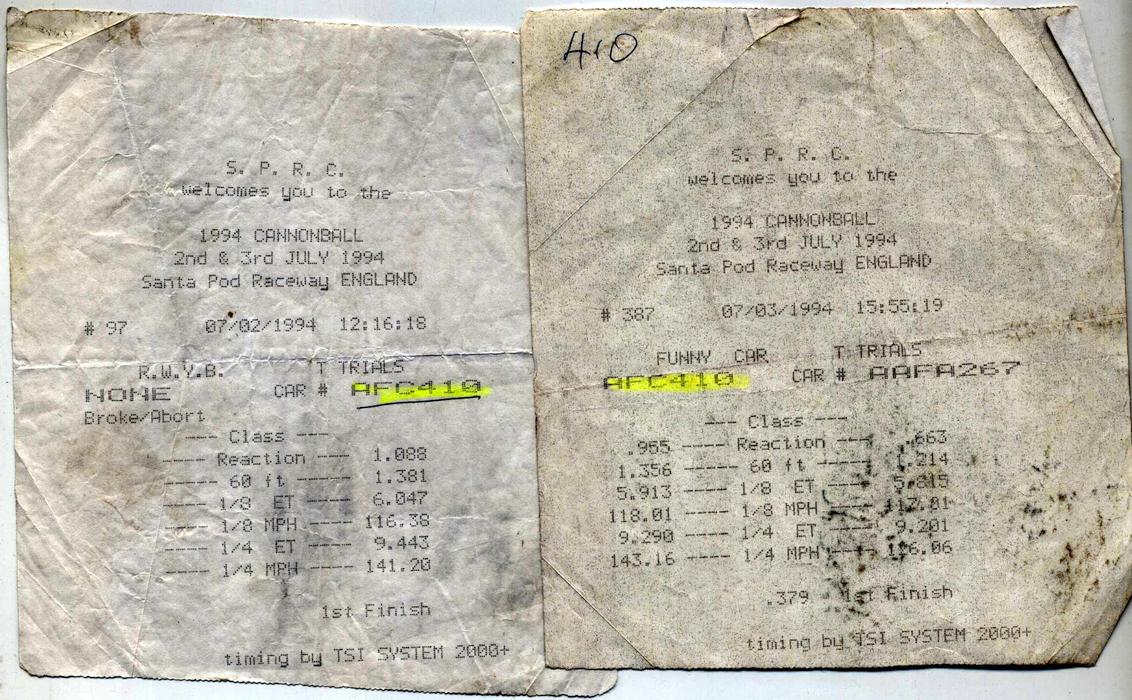 S. P. R. C.
welcomes you to the
1994 CANNONBALL
2nd & 3rd JULY 1994
Santa Pod Raceway ENGLAND
# 97 07/02/1994 12:16:18
R.W.Y.B. T TRIALS
NONE CAR # AFC410
Broke/Abort
--- Class ---
---- Reaction --- 1.088
---- 60 ft ---- 1.381
---- 1/8 ET ---- 6.047
---- 1/8 MPH ---- 116.38
---- 1/4 ET ---- 9.443
---- 1/4 MPH ---- 141.20
1st Finish
timing by TSI SYSTEM 2000+
410
S. P. R. C.
welcomes you to the
1994 CANNONBALL
2nd & 3rd JULY 1994
Santa Pod Raceway ENGLAND
# 387 07/03/1994 15:55:19
FUNNY CAR T TRIALS
AFC410 CAR # AAFA267
--- Class ---
.955 ---- Reaction --- .663
1.356 ---- 60 ft ---- 1.214
5.913 ---- 1/8 ET ----
118.01 ---- 1/8 MPH ---- 117.81
9.290 ---- 1/4 ET ---- 9.201
143.16 ---- 1/4 MPH ----
.379 1st Finish
timing by TSI SYSTEM 2000+